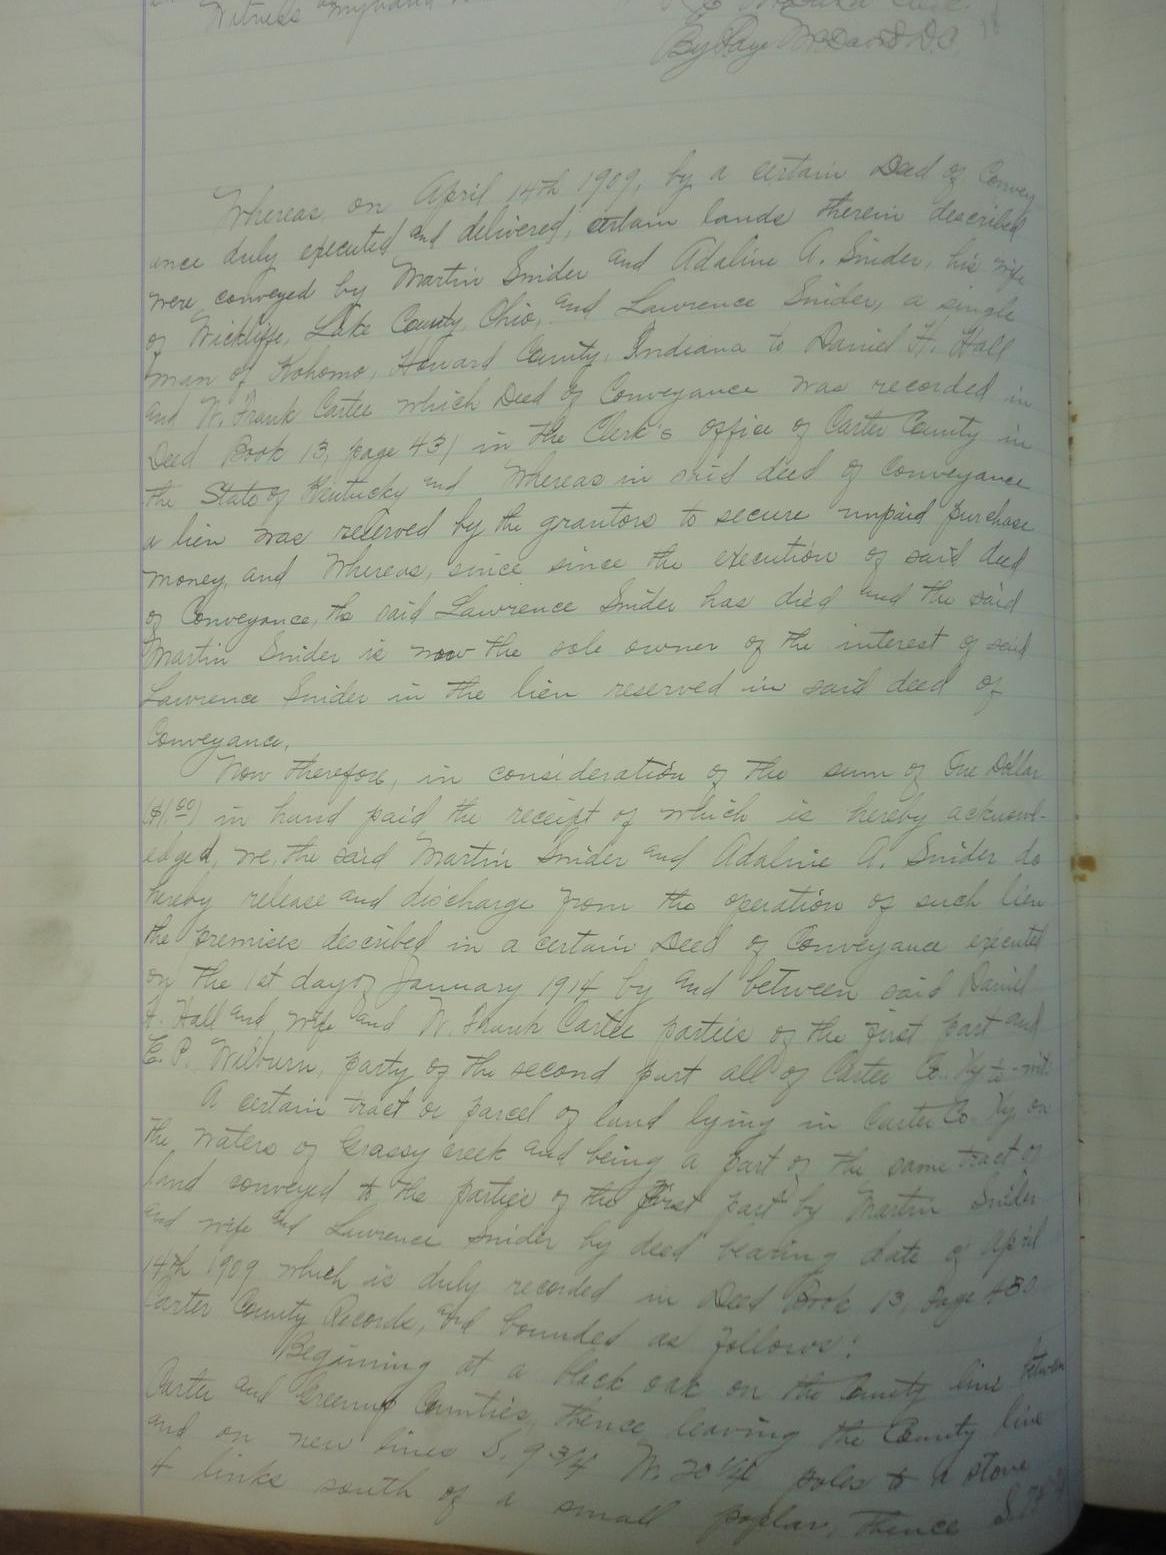 Witness my hand
By Faye McDavid D.C.
Whereas, on April 14th 1909, by a certain Deed of Convey
ance duly executed and delivered, certain lands therein described
were conveyed by Martin Snider and Adaline A. Snider, his wife
of Wickliffe, Lake County, Ohio, and Lawrence Snider, a single
man of Kohomo, Howard County, Indiana to Daniel H. Hall
and W. Frank Carter which Deed of Conveyance was recorded in
Deed Book 13, page 431 in the Clerk's office of Carter County in
the State of Kentucky and Whereas in said deed of Conveyance
a lien was reserved by the grantors to secure unpaid purchase
money, and Whereas, since since the execution of said deed
of Conveyance, the said Lawrence Snider has died and the said
Martin Snider is now the sole owner of the interest of said
Lawrence Snider in the lien reserved in said deed of
Conveyance.
Now therefore, in consideration of the sum of One Dollar
($1.00) in hand paid, the receipt of which is hereby acknowl-
edged, we, the said Martin Snider and Adaline A. Snider do
hereby release and discharge from the operation of such lien
the premises described in a certain Deed of Conveyance executed
on the 1st day of January 1914 by and between said Daniel
H. Hall and wife and W. Frank Carter parties of the first part and
E. P. Wilburn, party of the second part all of Carter Co. Ky to-wit:
A certain tract or parcel of land lying in Carter Co. Ky. on
the waters of Grassy creek and being a part of the same tract of
land conveyed to the parties of the first part by Martin Snider
and wife and Lawrence Snider by deed bearing date of April
14th 1909 which is duly recorded in Deed Book 13, page 430
Carter County Records, and bounded as follows:
Beginning at a black oak on the County line between
Carter and Greenup Counties, thence leaving the County line
and on new lines S. 9 3/4 W. 20 1/4 poles to a stone
4 links south of a small poplar, thence